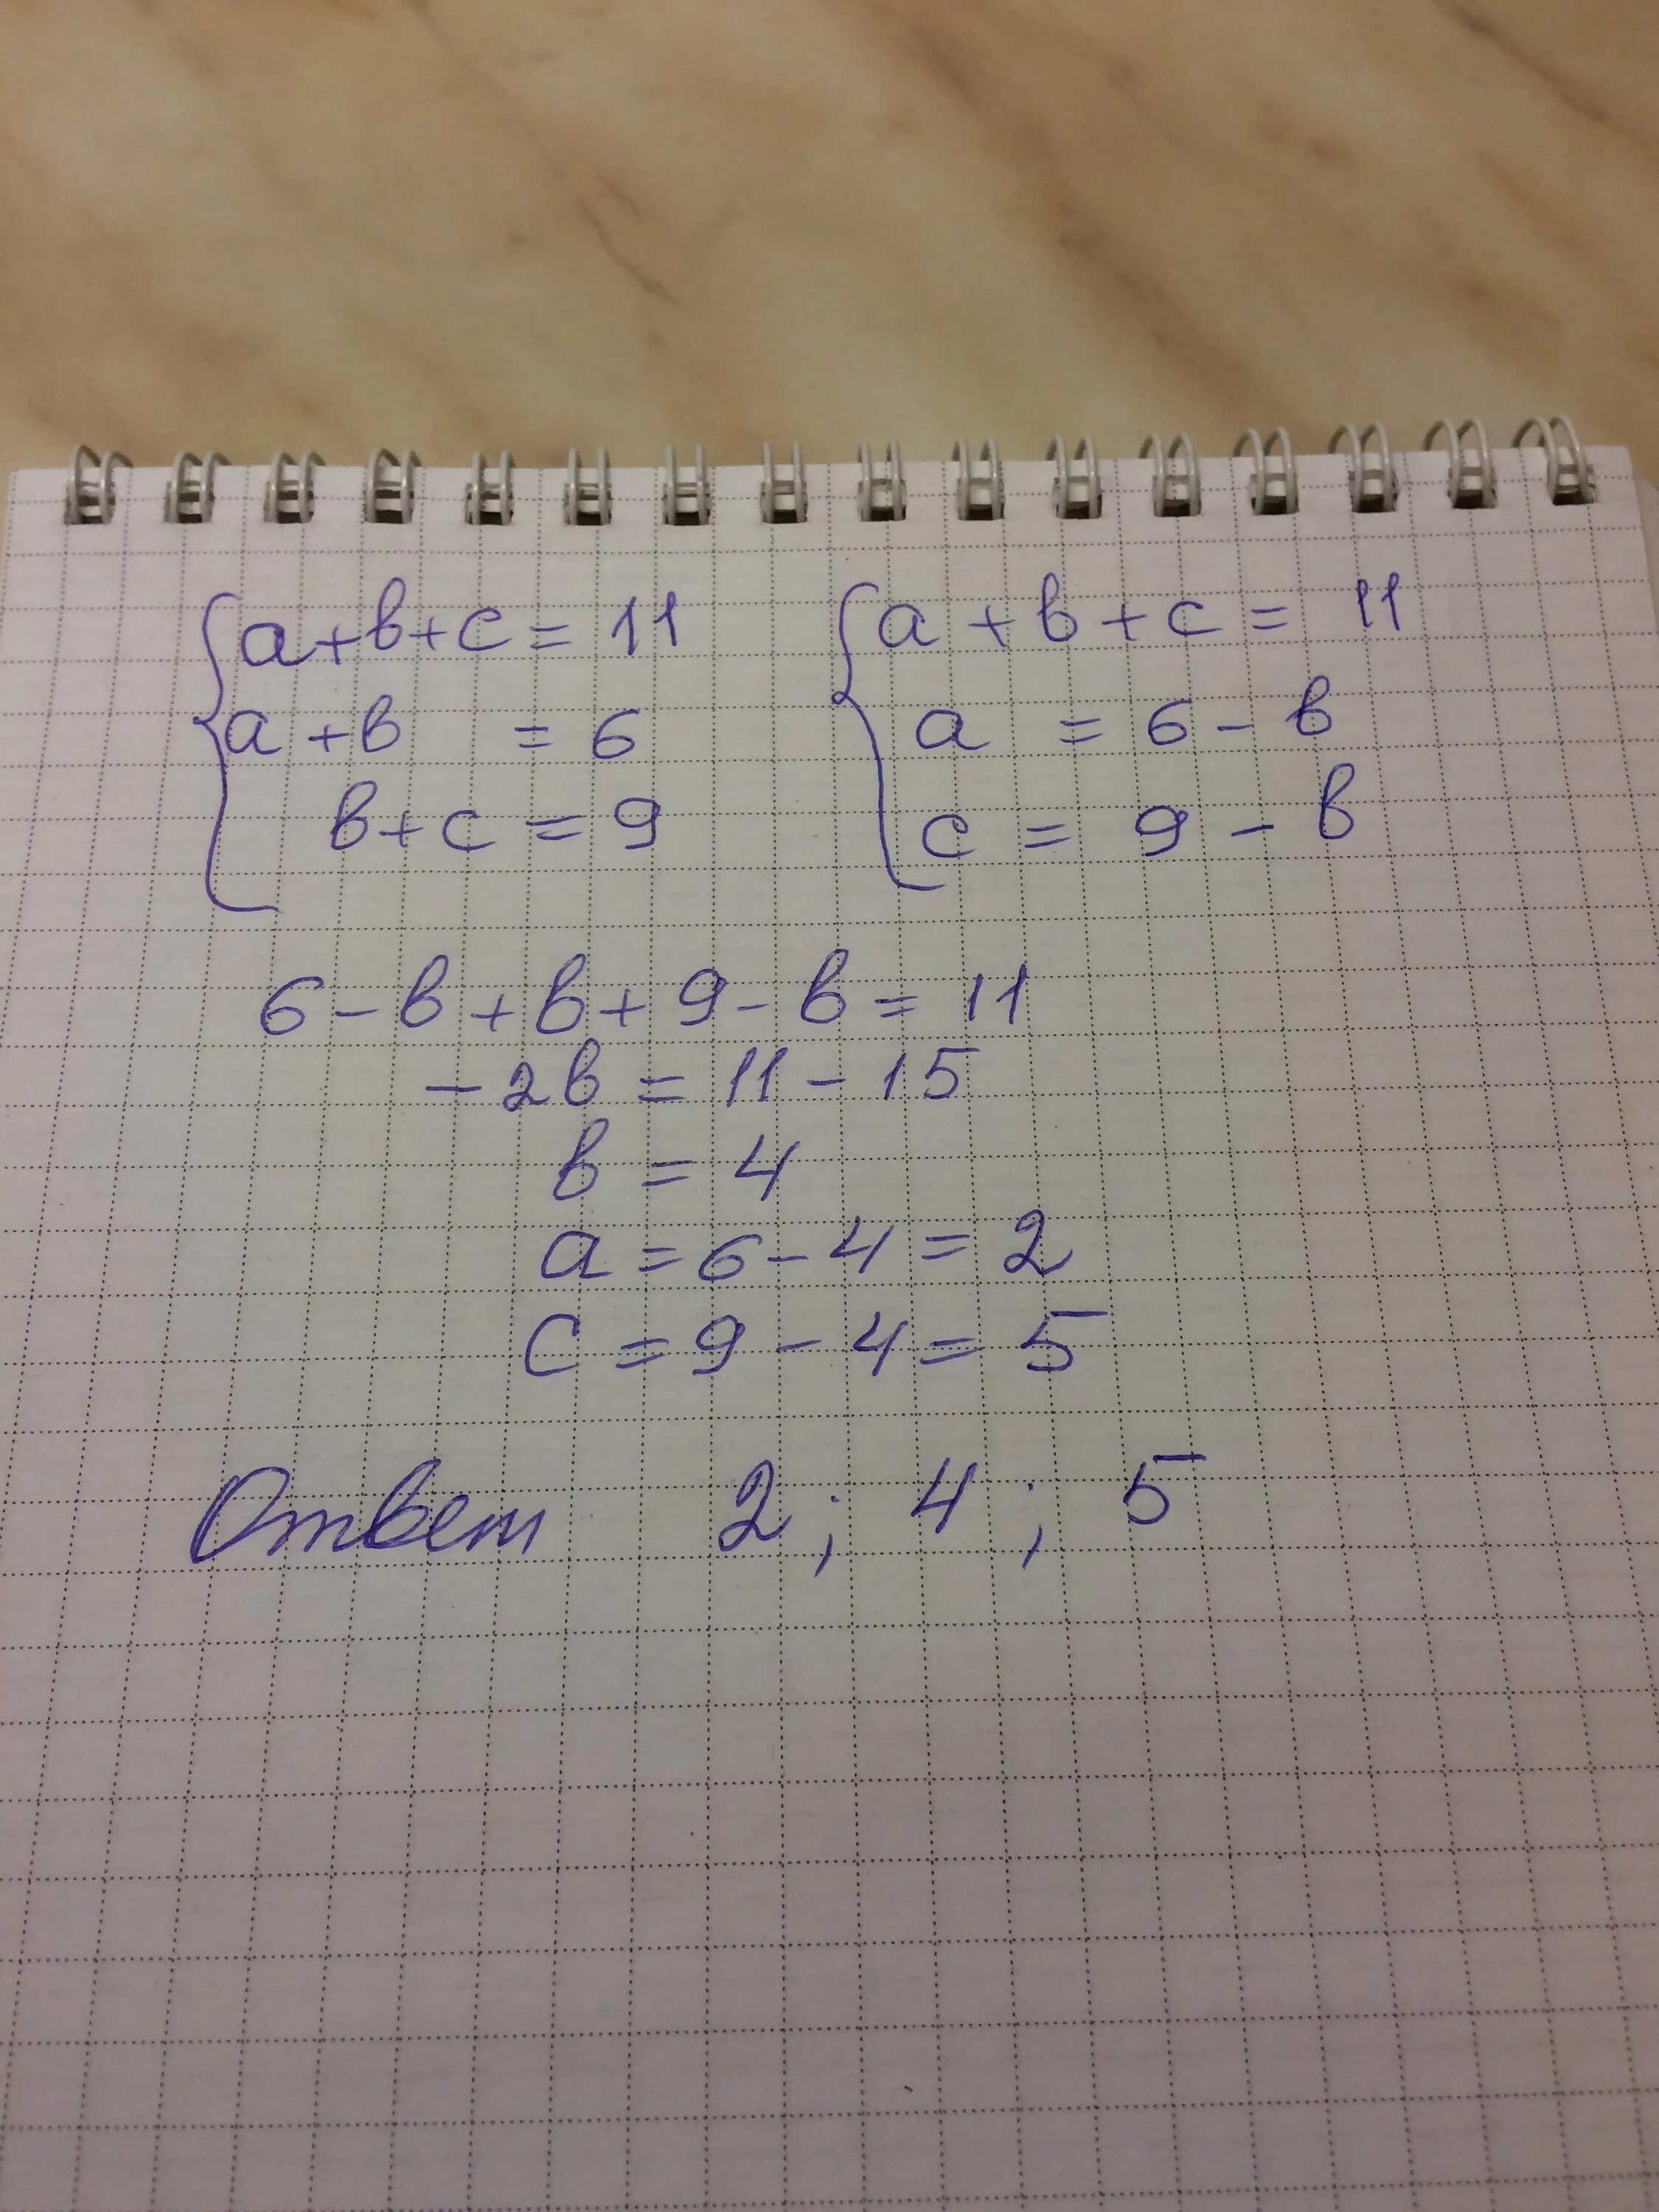 a+b+c=11
a+b =6
b+c=9
a+b+c=11
a =6-b
c=9-b
6-b+b+9-b=11
-2b=11-15
b=4
a=6-4=2
c=9-4=5
Ответ 2; 4; 5